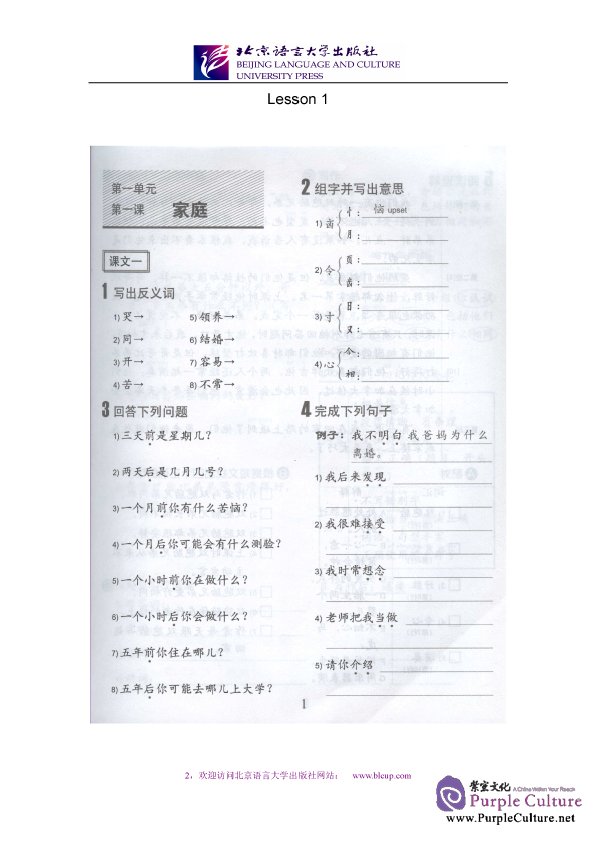 北京语言大学出版社
BEIJING LANGUAGE AND CULTURE
UNIVERSITY PRESS
Lesson 1
第一单元
第一课 家庭
课文一
1 写出反义词
1) 哭→ 5) 领养→
2) 同→ 6) 结婚→
3) 开→ 7) 容易→
4) 苦→ 8) 不常→
2 组字并写出意思
1) 卤 忄: 恼 upset
月:
2) 令 页:
齿:
3) 寸 目:
又:
4) 心 今:
相:
3 回答下列问题
1) 三天前是星期几?
2) 两天后是几月几号?
3) 一个月前你有什么苦恼?
4) 一个月后你可能会有什么测验?
5) 一个小时前你在做什么?
6) 一个小时后你会做什么?
7) 五年前你住在哪儿?
8) 五年后你可能去哪儿上大学?
4 完成下列句子
例子: 我不明白 我爸妈为什么
离婚。
1) 我后来发现
2) 我很难接受
3) 我时常想念
4) 老师把我当做
5) 请你介绍
1
2，欢迎访问北京语言大学出版社网站： www.blcup.com
紫宝文化 A China Within Your Reach
Purple Culture
www.PurpleCulture.net